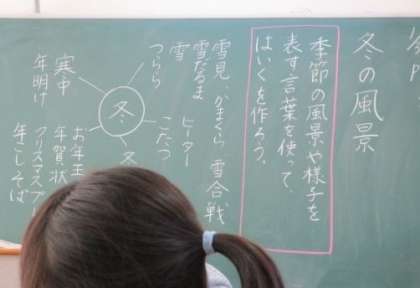 冬の風景
季節の風景や様子を
表す言葉を使って、
はいくを作ろう。
雪見、かまくら 雪合戦
雪だるま ヒーター
雪 こたつ
つらら
冬
寒中
年明け
お年玉
年賀状
クリスマスプレ
年こしそば